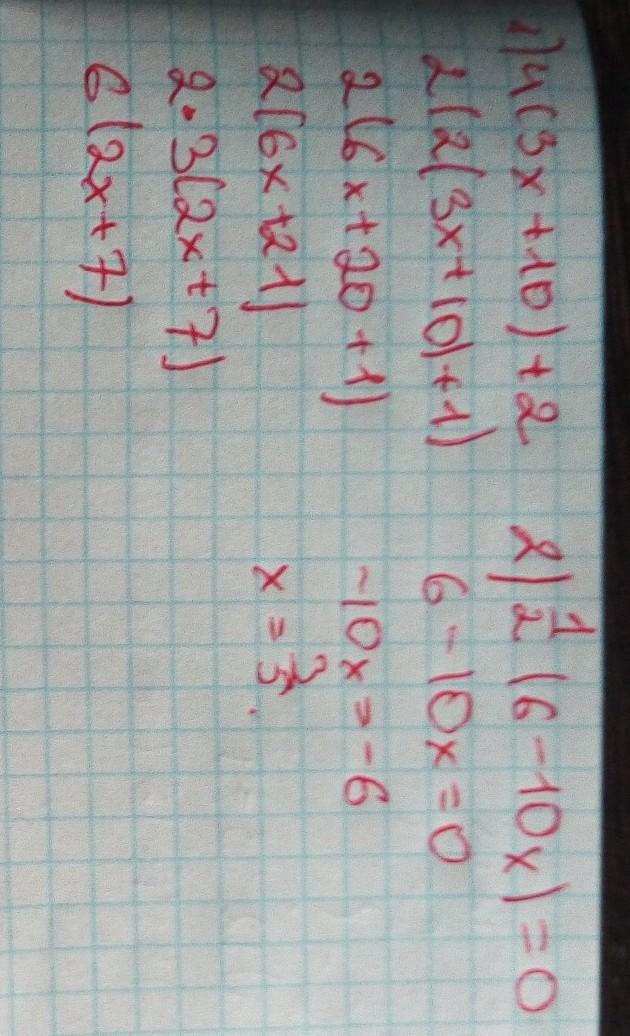 1) 4(3x+10)+2
2(2(3x+10)+1)
2(6x+20+1)
2(6x+21)
2·3(2x+7)
6(2x+7)
2) 1/2 (6-10x)=0
6-10x=0
-10x=-6
x=3/5.